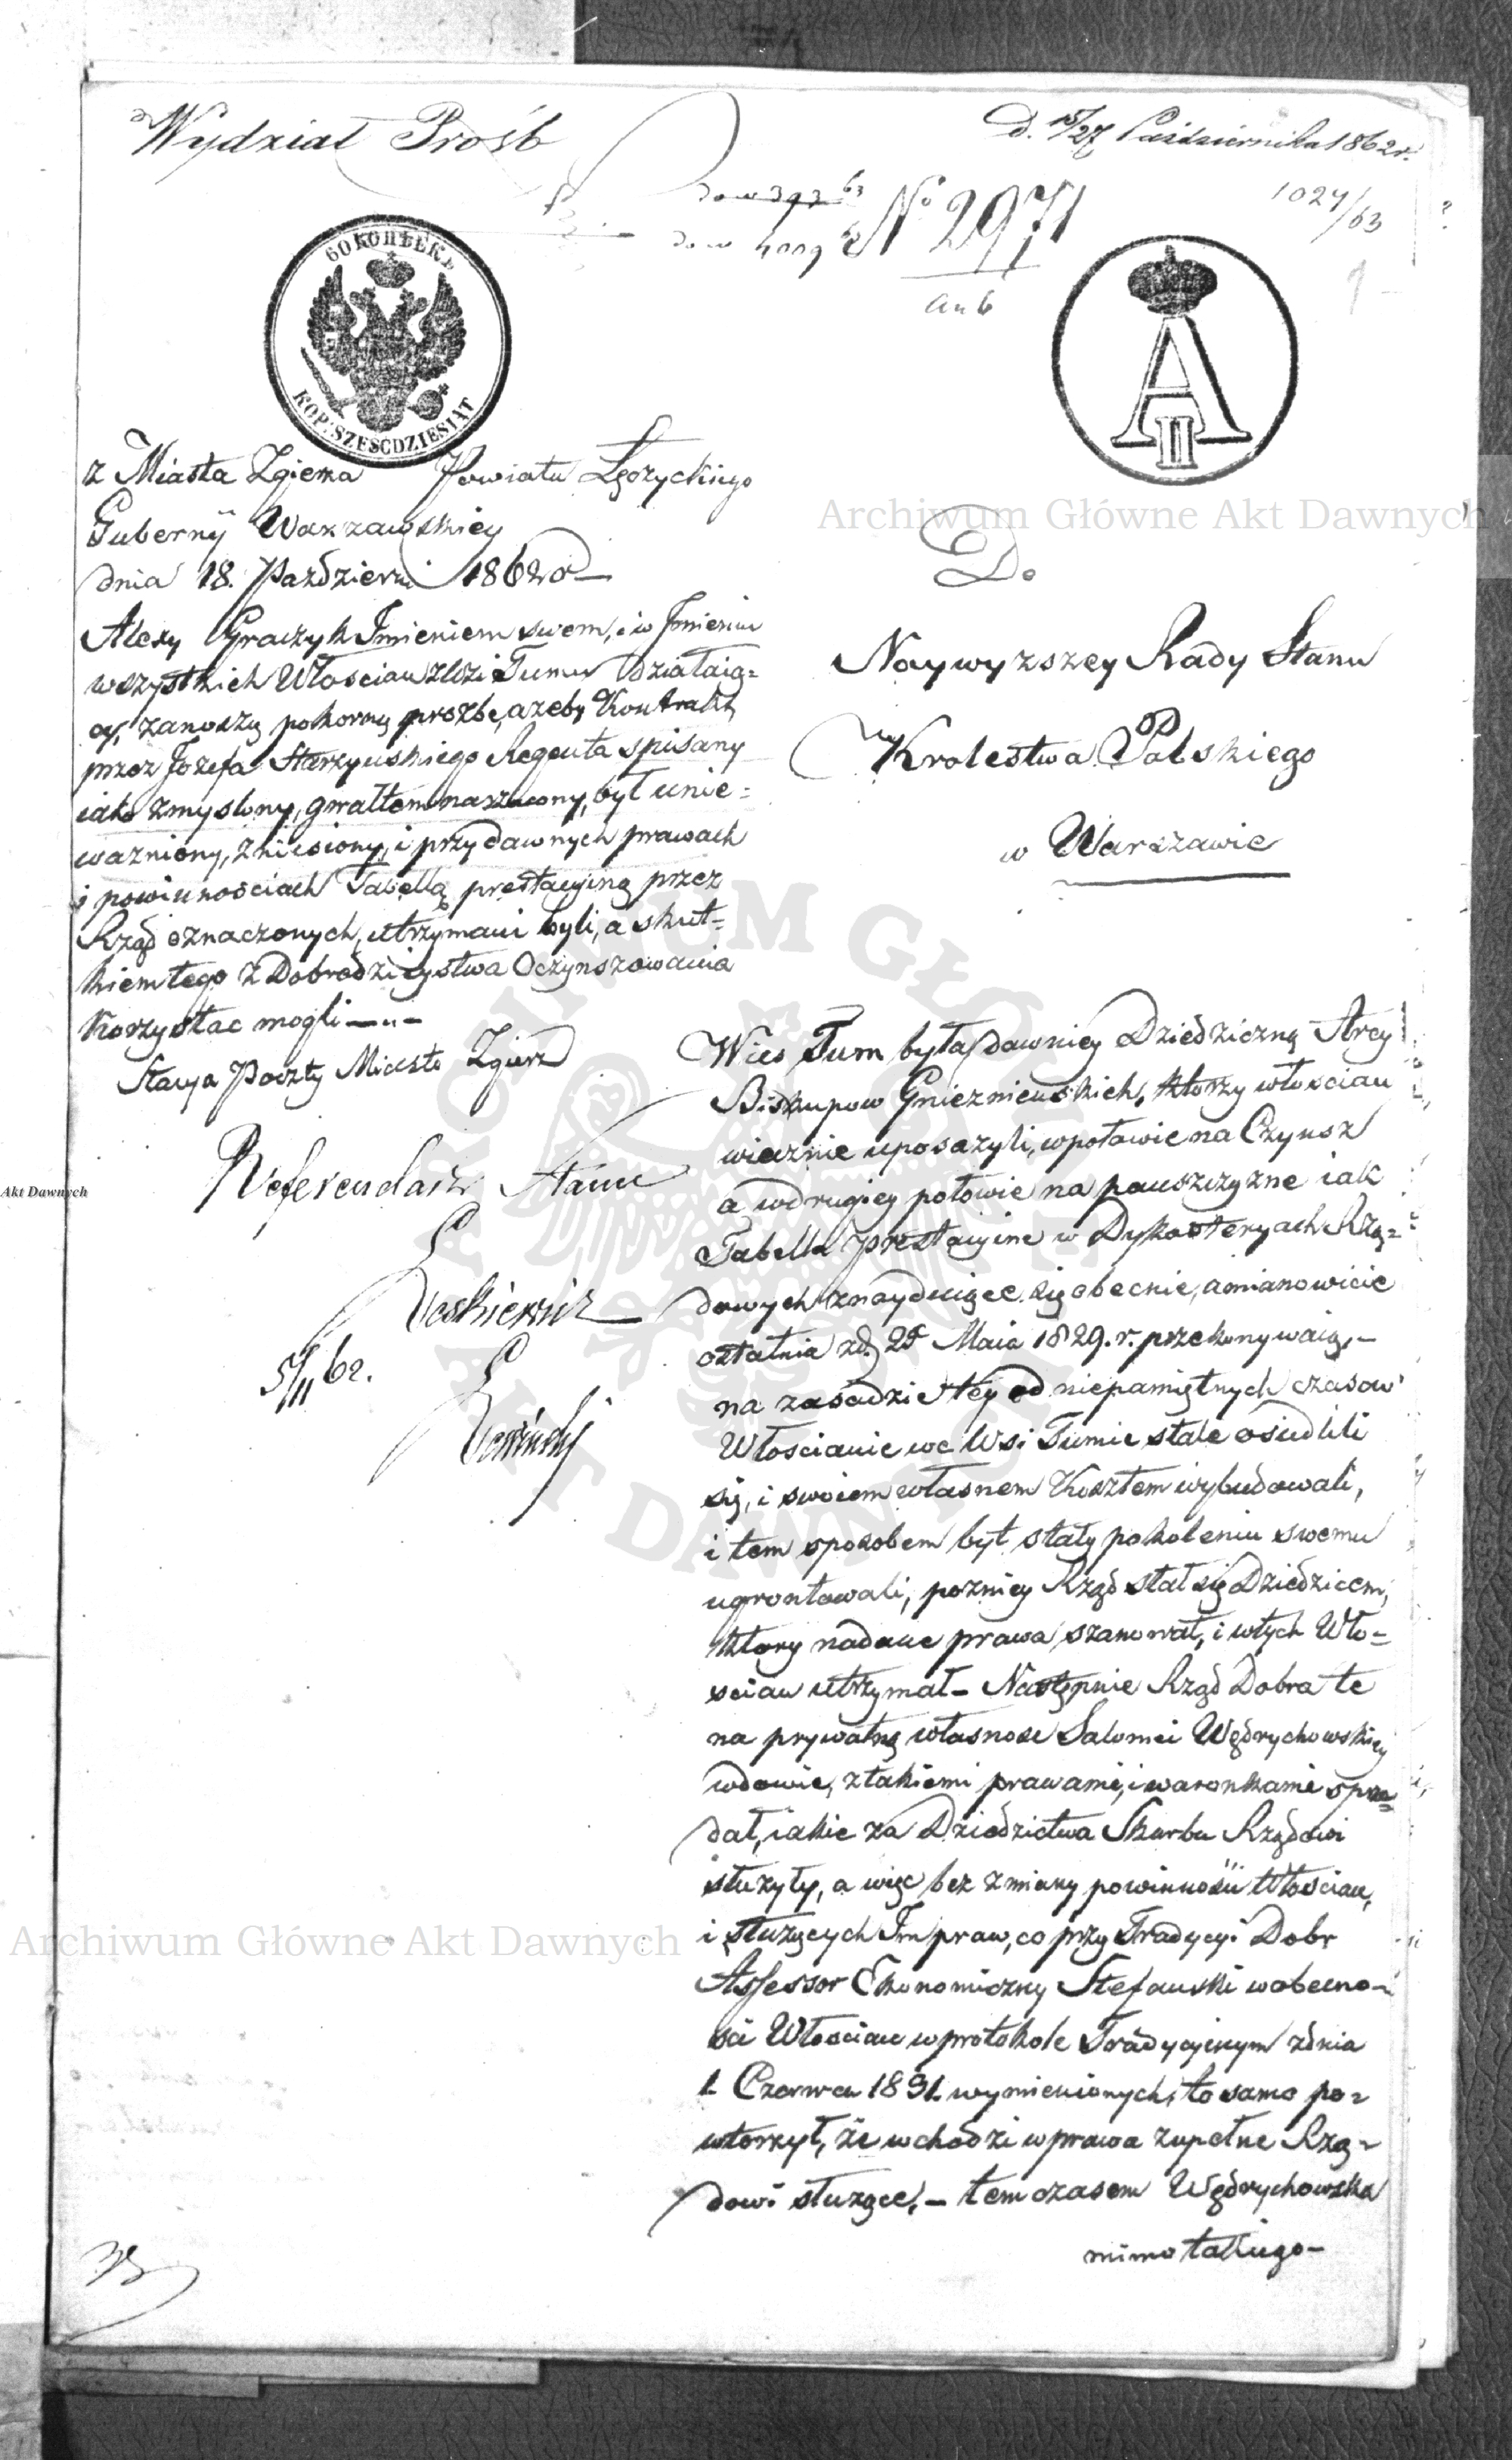 Wydział Prośb
D. 15/27 Października 1862 r.
dow 393 63
dow 4009
No 2971
1024/63
60 KOПѢЕКЪ
KOP: SZEŚĆDZIESIĄT
A II
z Miasta Zgierza Powiatu Łęczyckiego
Gubernÿ Warzawskiey
dnia 18. Październi 1862 o
Alexy Graczyk Imieniem swem, i w Imieniu
wszystkich Włoscian z Wsi Tumu działaią=
cy, zanoszą pokorną prozbę, azeby Kontrakt
przez Jozefa Starzynskiego Regenta spisany
iako zmyslony, gwałtem narzucony, był unie=
wazniony, zniesiony, i przy dawnych prawach
i powinnościach Tabellą prestacyiną przez
Rząd oznaczonych, utrzymani byli, a skut=
kiem tego z Dobrodzieystwa Oczynszowania
Korzystac mogli —"–
Stacya Poczty Miasto Zgierz
Referendarz Stanu
5/11 62.
Do
Naywyzszey Rady Stanu
Krolestwa Polskiego
w Warszawie
Wies Tum była dawniey Dziedziczną Arcy
Biskupow Gnieznienskich, ktorzy włoscian
wiecznie uposazyli, w połowie na Czynsz
a w drugiey połowie na pauszczyzne iak
Tabella prestacyine w Dykasteryach Rzą=
dowych znayduiące się obecnie, a mianowicie
ostatnia z d. 25 Maia 1829. r. przekonywaią,–
na zasadzie tey od niepamiętnych czasow
Włoscianie we Wsi Tumie stale osiedlili
się, i swoiem własnem Kosztem wybudowali,
i tem sposobem byt stały pokoleniu swemu
ugrontowali, pozniey Rząd stał się Dziedzicem,
ktory nadane prawa szanował, i w tych Wło=
scian utrzymał – Następnie Rząd Dobra te
na prywatną własnosc Salomei Wędrychowskiey
wdowie, z takiemi prawami, i waronkami sprze=
dał, iakie za Dziedzictwa Skarbu Rządowi
słuzyły, a więc bez zmiany powinnosci Włoscian,
i słuzących Im praw, co przy Tradycyi Dobr
Assessor Ekonomiczny Stefanski w obecno=
sci Włoscian w protokole Tradycyinym z dnia
1. Czerwca 1831. wymienionych, to samo po=
wtorzył, że wchodzi w prawa zupełne Rzą=
dowi słuzące, – tem czasem Wędrychowska
mimo takiego –
Archiwum Główne Akt Dawnych
Akt Dawnych
ARCHIWUM GŁÓWNE
AKT DAWNYCH
Archiwum Główne Akt Dawnych